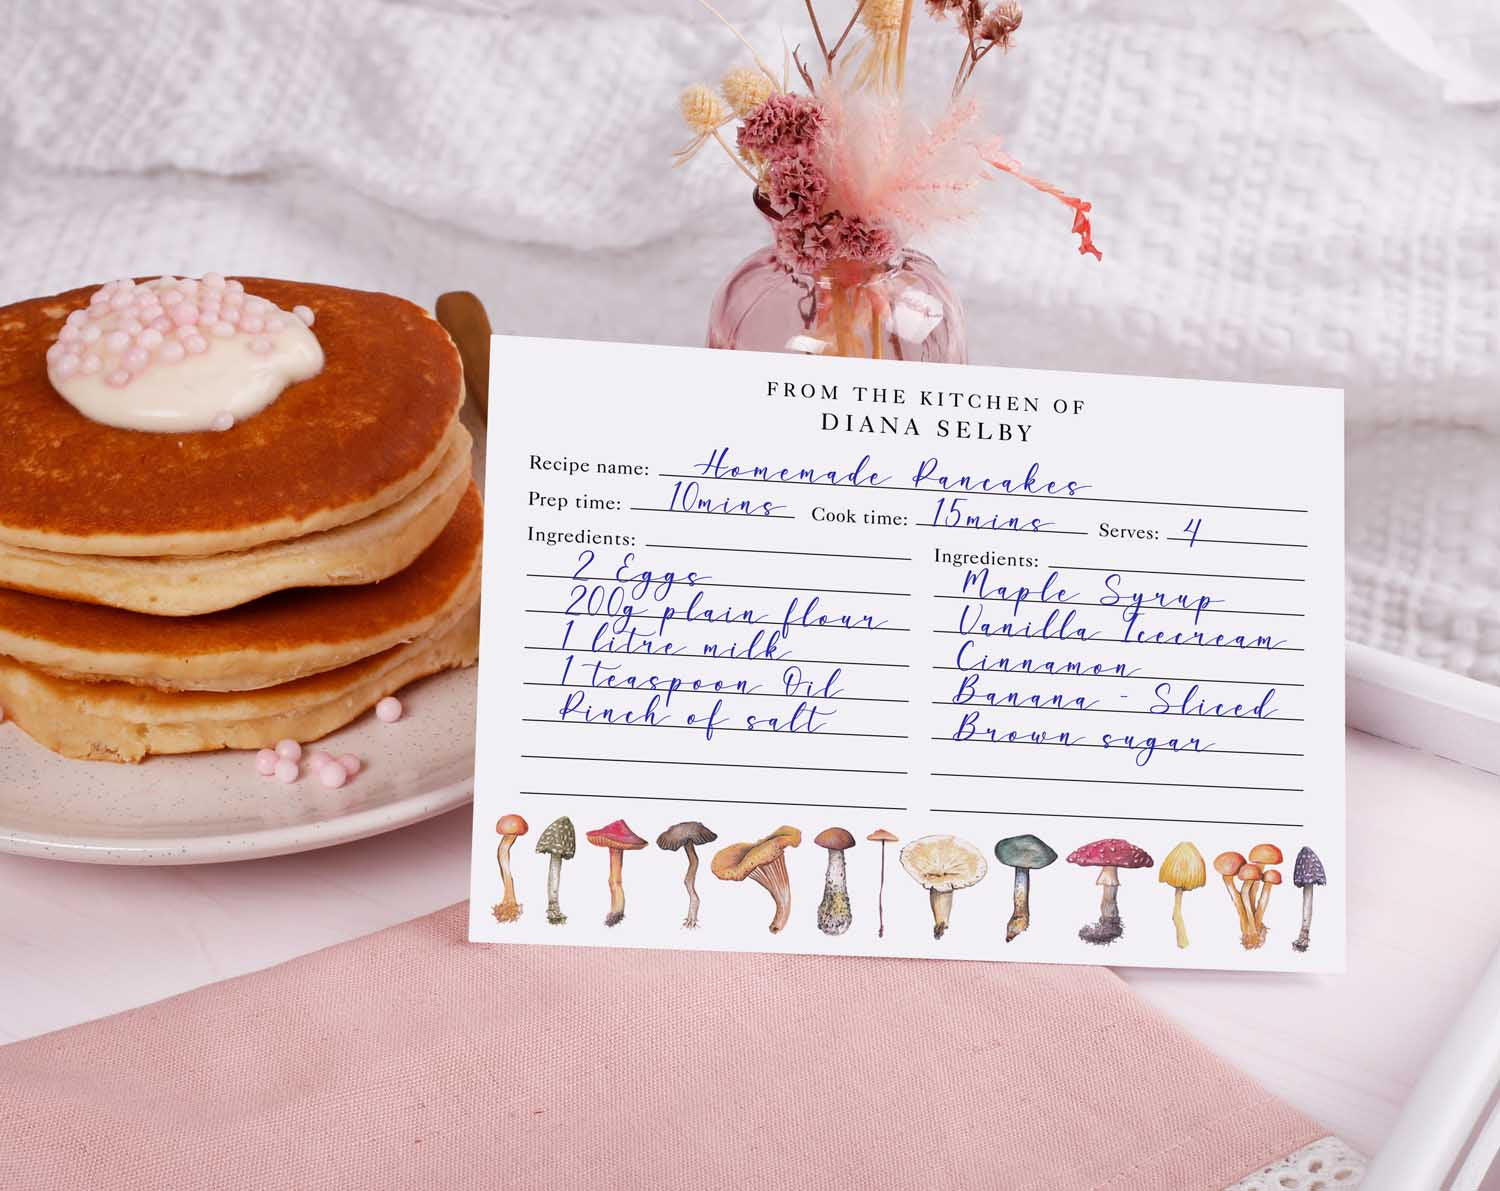 FROM THE KITCHEN OF
DIANA SELBY
Recipe name: Homemade Pancakes
Prep time: 10mins Cook time: 15mins Serves: 4
Ingredients:
2 Eggs
200g plain flour
1 litre milk
1 teaspoon Oil
Pinch of salt
Ingredients:
Maple Syrup
Vanilla Icecream
Cinnamon
Banana - Sliced
Brown sugar